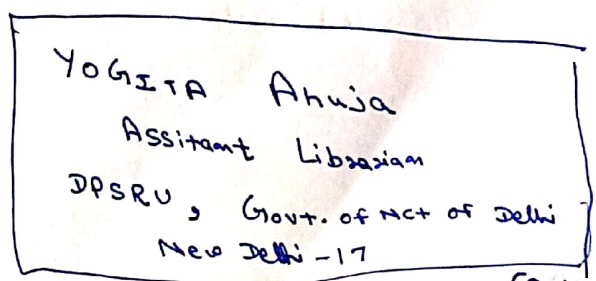 YOGITA Ahuja
Assitant Librarian
DPSRU, Govt. of NCT of Delhi
New Delhi - 17